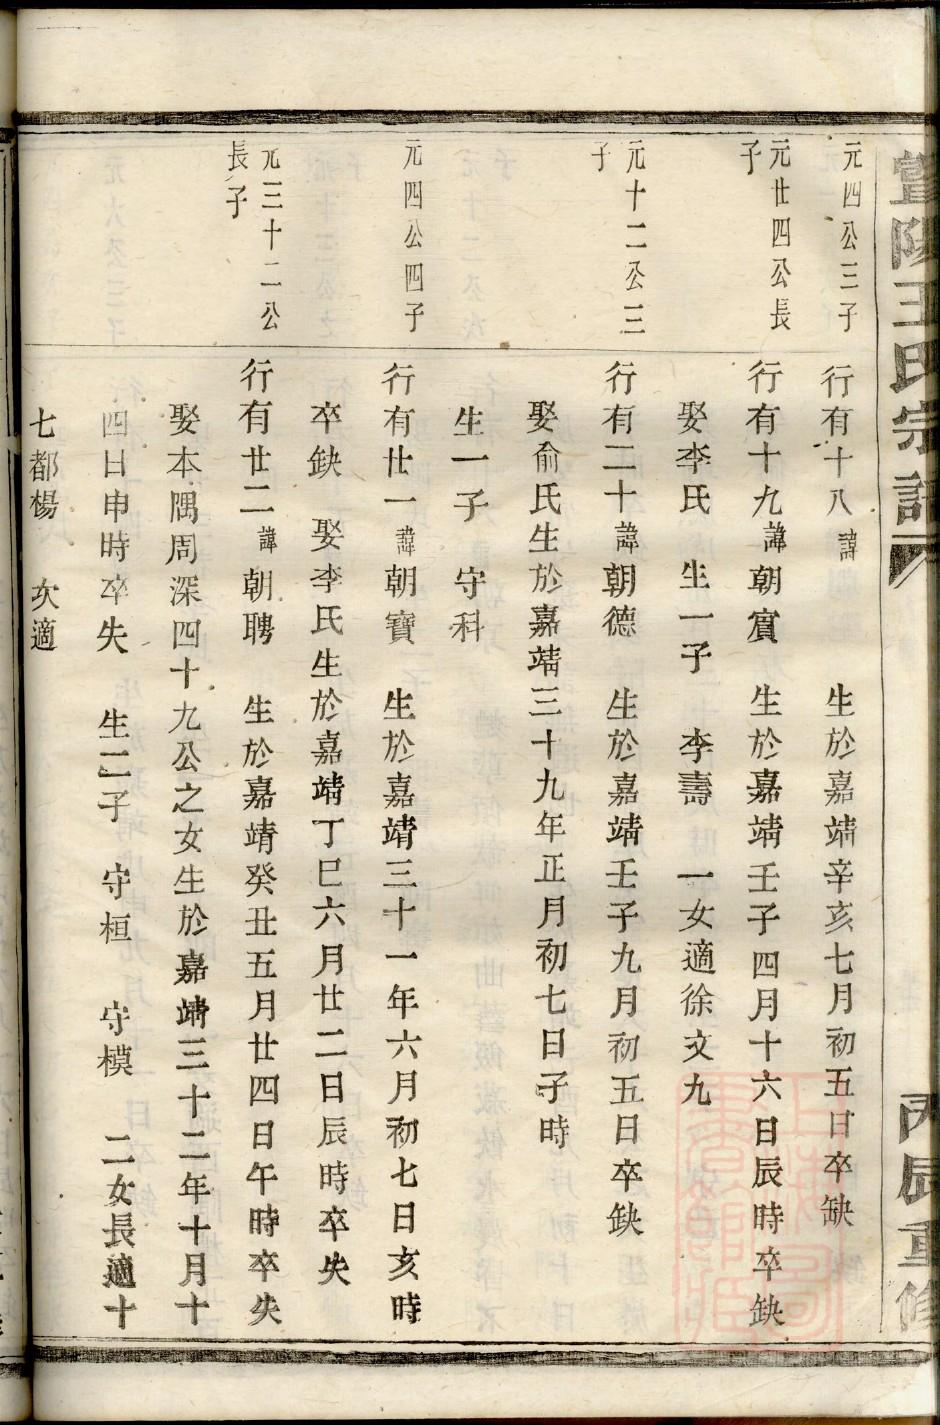 暨陽王氏宗譜
丙辰重修
元四公三子
行有十八諱 生於嘉靖辛亥七月初五日卒缺
元廿四公長子
行有十九諱朝賔 生於嘉靖壬子四月十六日辰時卒缺
娶李氏 生一子 李壽 一女適徐文九
元十二公三子
行有二十諱朝德 生於嘉靖壬子九月初五日卒缺
娶俞氏生於嘉靖三十九年正月初七日子時
生一子 守科
元四公四子
行有廿一諱朝寶 生於嘉靖三十一年六月初七日亥時
卒缺 娶李氏生於嘉靖丁巳六月廿二日辰時卒失
元三十二公長子
行有廿二諱朝聘 生於嘉靖癸丑五月廿四日午時卒失
娶本隅周深四十九公之女生於嘉靖三十二年十月十
四日申時卒失 生二子 守桓 守模 二女長適十
七都楊 次適